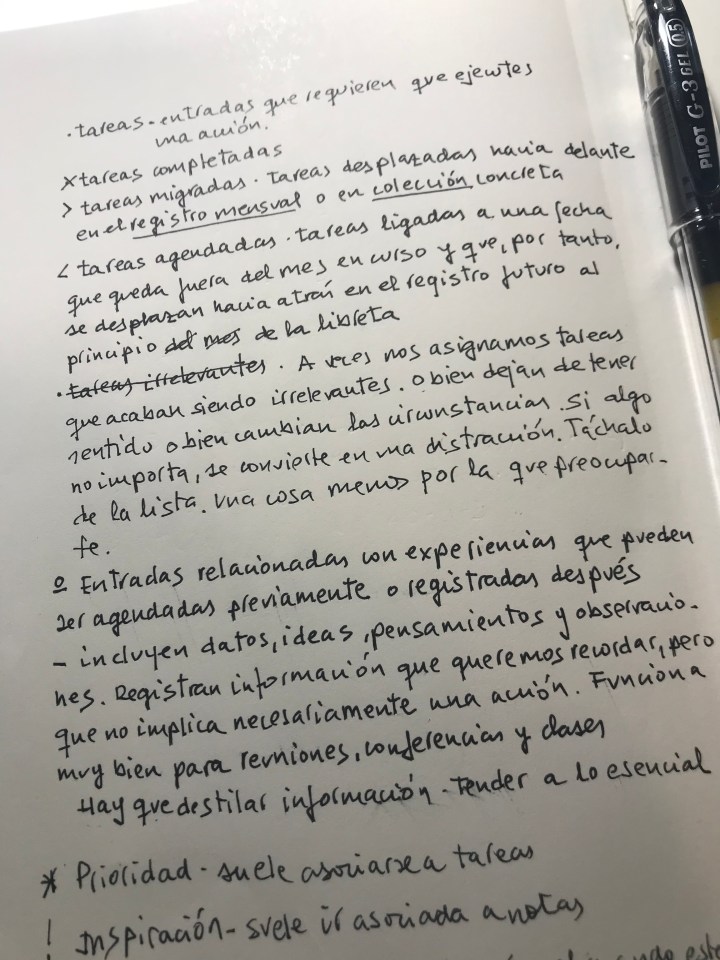 · tareas - entradas que requieren que ejecutes
una acción.
x tareas completadas
> tareas migradas. tareas desplazadas hacia delante
en el registro mensual o en colección concreta
< tareas agendadas. tareas ligadas a una fecha
que queda fuera del mes en curso y que, por tanto,
se desplazan hacia atrás en el registro futuro al
principio del mes de la libreta
· tareas irrelevantes. A veces nos asignamos tareas
que acaban siendo irrelevantes. O bien dejan de tener
sentido o bien cambian las circunstancias. Si algo
no importa, se convierte en una distracción. Táchalo
de la lista. Una cosa menos por la que preocupar-
te.
o Entradas relacionadas con experiencias que pueden
ser agendadas previamente o registradas después
- incluyen datos, ideas, pensamientos y observacio-
nes. Registran información que queremos recordar, pero
que no implica necesariamente una acción. Funciona
muy bien para reuniones, conferencias y clases
Hay que destilar información - Tender a lo esencial
* Prioridad - suele asociarse a tareas
! Inspiración - suele ir asociada a notas
PILOT G-3 GEL 05